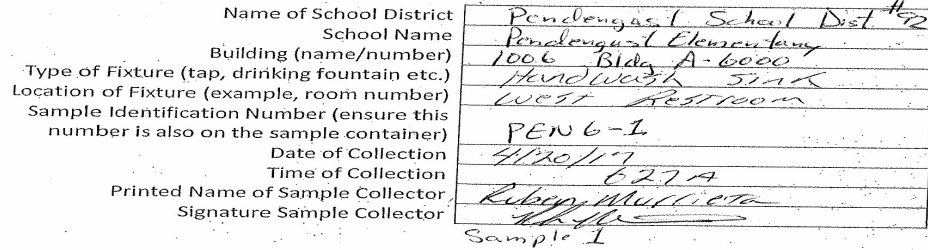 Name of School District Pendengast School Dist #92
School Name Pendengast Elementary
Building (name/number) 1006 Bldg A-6000
Type of Fixture (tap, drinking fountain etc.) Handwash Sink
Location of Fixture (example, room number) West Restroom
Sample Identification Number (ensure this
number is also on the sample container) PEN6-1
Date of Collection 4/20/17
Time of Collection 627A
Printed Name of Sample Collector Ruben Murrieta
Signature Sample Collector
Sample 1